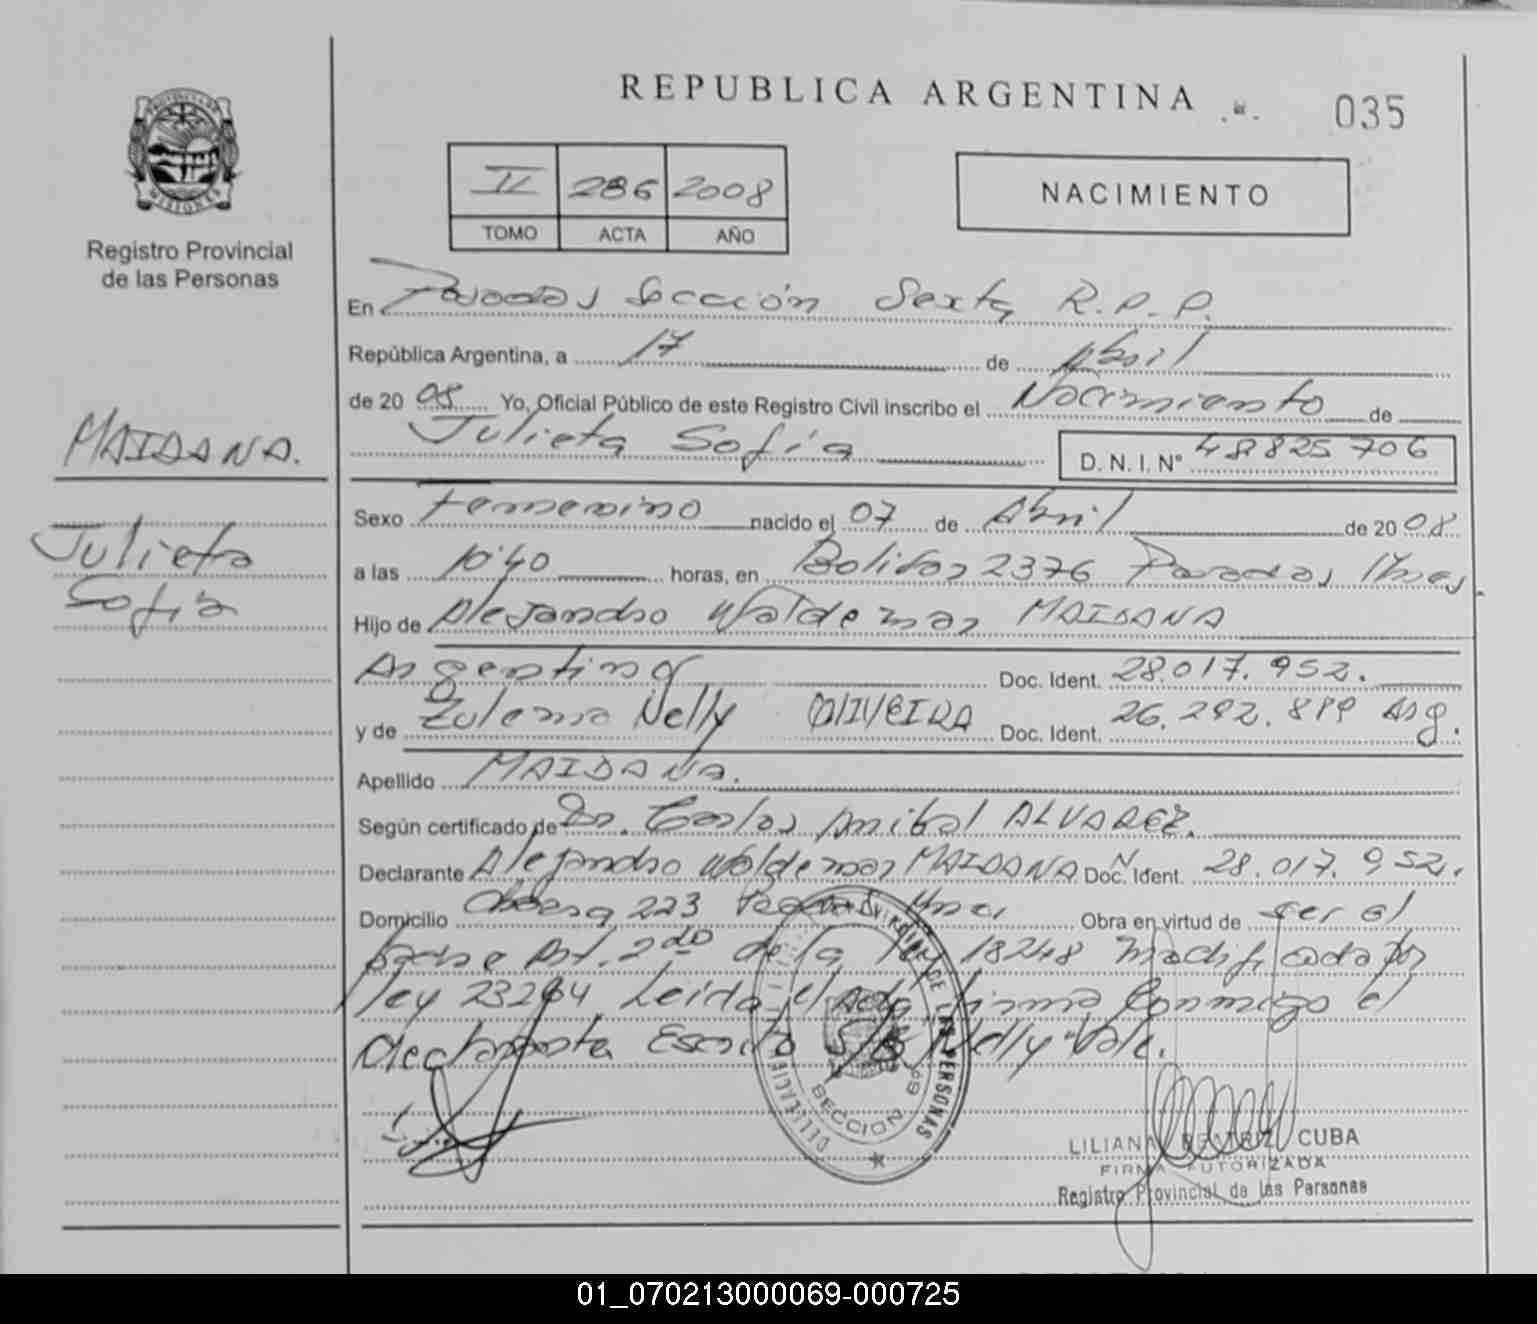 REPUBLICA ARGENTINA
035
PROVINCIA DE MISIONES
Registro Provincial
de las Personas
II 286 2008
TOMO ACTA AÑO
NACIMIENTO
En Posadas Sección Sexta R.P.P.
República Argentina, a 17 de Abril
de 20 08 Yo, Oficial Público de este Registro Civil inscribo el Nacimiento de
Julieta Sofía
D. N. I. Nº 48825706
MAIDANA.
Julieta
Sofía
Sexo Femenino nacido el 07 de Abril de 20 08
a las 10:40 horas, en Bolivar 2376 Posadas Mnes
Hijo de Alejandro Waldemar MAIDANA
Argentino Doc. Ident. 28.017.952.
y de Zulema Nelly OLIVEIRA Doc. Ident. 26.292.899 Arg.
Apellido MAIDANA.
Según certificado de Dr. Carlos Anibal ALVAREZ.
Declarante Alejandro Waldemar MAIDANA Doc. Ident. 28.017.952.
Domicilio 223 Mnes Obra en virtud de ser el
padre Art. 2do de la ley 18248 modificada por
ley 23264 Leida el acta firma conmigo el
declarante Escrito Nelly Vale.
DELEGACION
PROVINCIAL DE LAS PERSONAS
SECCION 6º
LILIANA BEATRIZ CUBA
FIRMA AUTORIZADA
Registro Provincial de las Personas
01_070213000069-000725